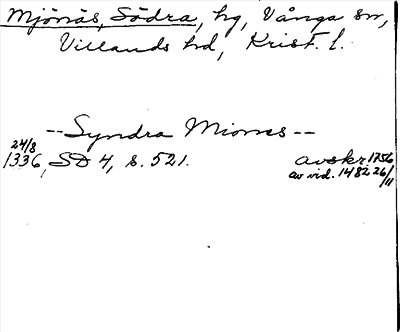 Mjönäs, Södra, hg, Vånga sn,
Villands hd, Krist. l.
--Syndra Mionæs--
24/8
1336, SD 4, s. 521.
avskr 1756
av vid. 1482 26/11